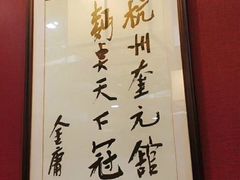 杭州奎元館
麵冠天下
金庸